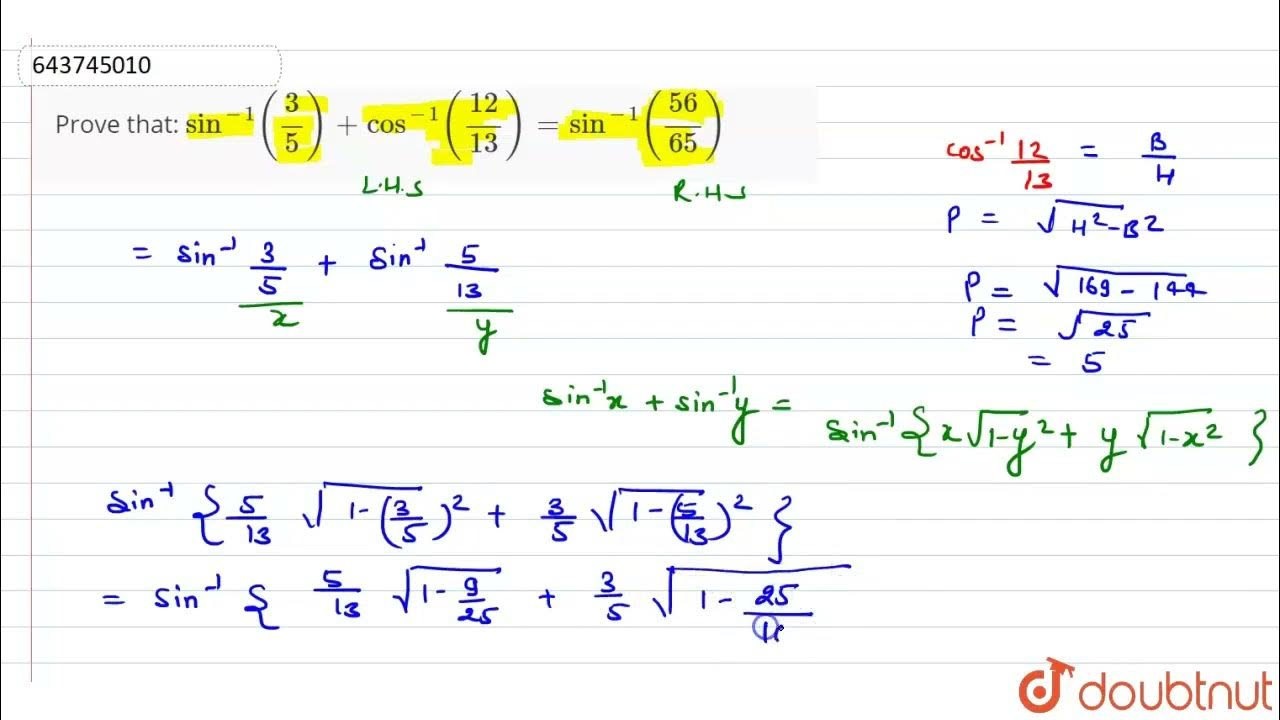 643745010
Prove that: sin⁻¹(3/5) + cos⁻¹(12/13) = sin⁻¹(56/65)
L.H.S R.H.S
cos⁻¹ 12/13 = B/H
P = √(H²-B²)
= sin⁻¹ 3/5 + sin⁻¹ 5/13
x y
P = √(169 - 144)
P = √25
= 5
sin⁻¹x + sin⁻¹y =
sin⁻¹{x√(1-y²) + y√(1-x²)}
sin⁻¹ {5/13 √(1-(3/5)²) + 3/5 √(1-(5/13)²)}
= sin⁻¹ { 5/13 √(1-9/25) + 3/5 √(1 - 25/1
doubtnut